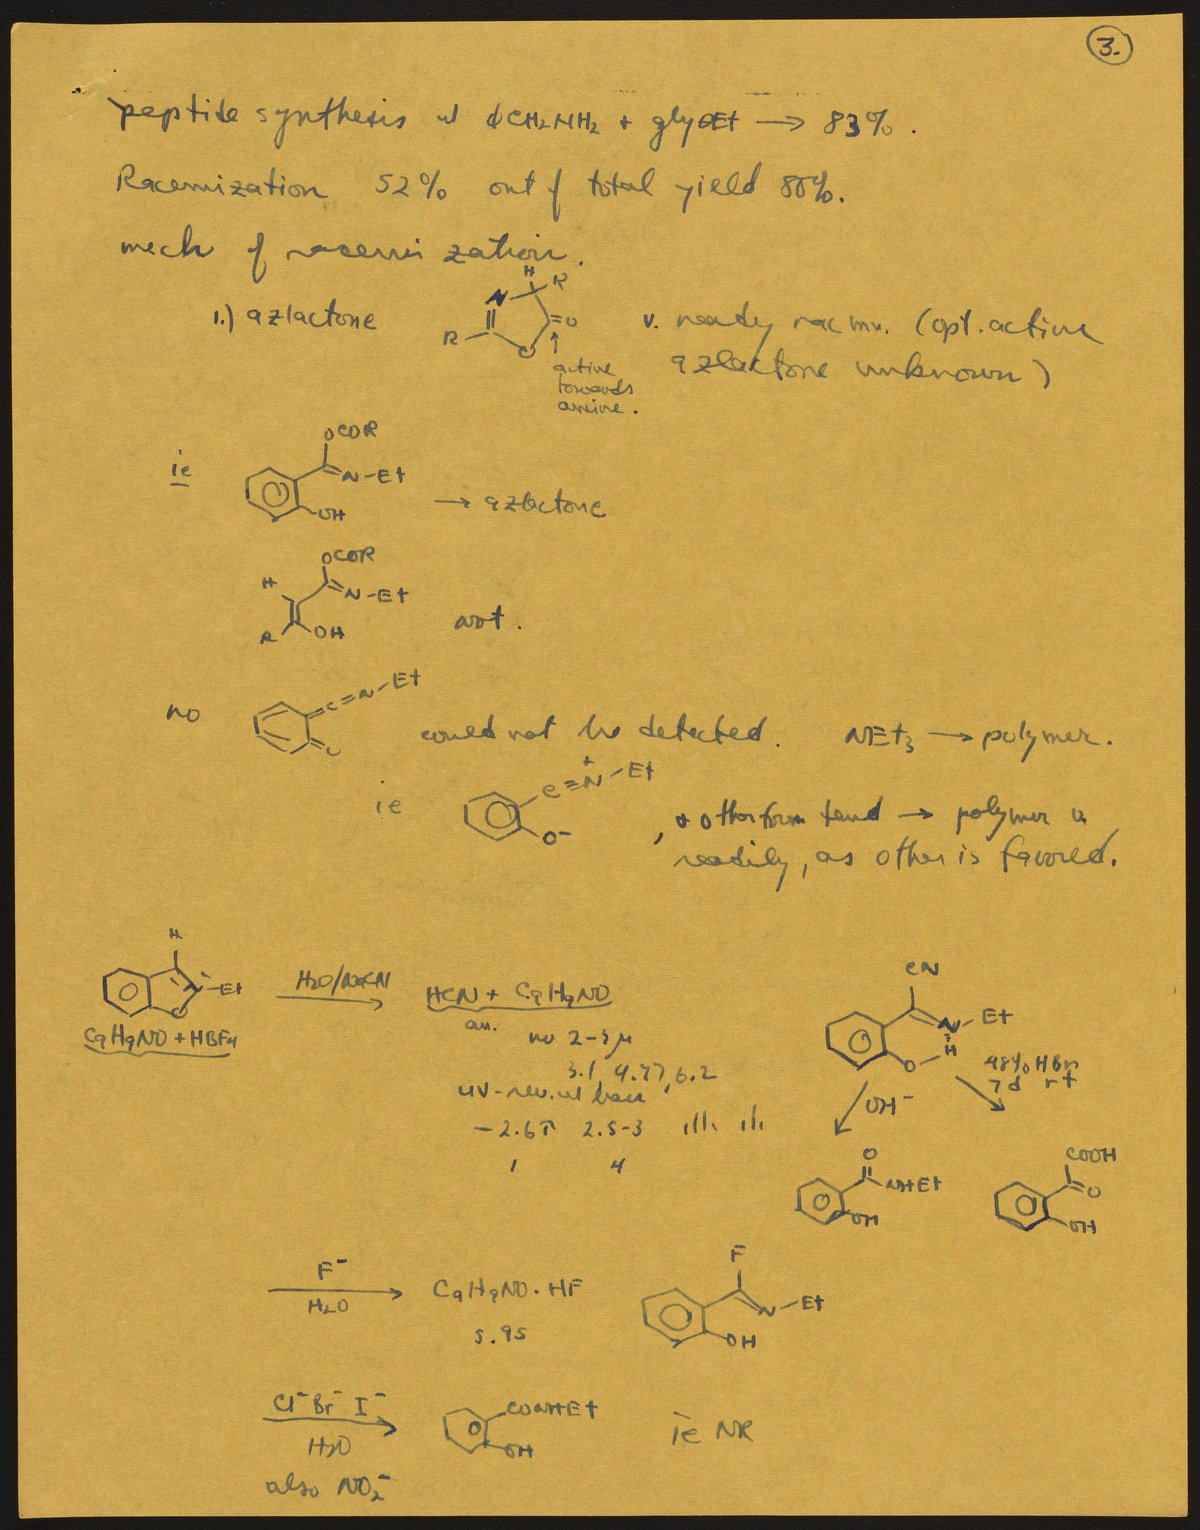 3.
peptide synthesis w/ ϕCH2NH2 + gly OEt → 83%.
Racemization 52% out of total yield 80%.
mech of racemization.
1.) azlactone
H
R
N
=O
R
O
↑
active
towards
amine.
v. ready racmn. (opt. active
azlactone unknown)
ie
OCOR
N-Et
OH
→ azlactone
OCOR
H
N-Et
R
OH
not.
no
=C=N-Et
O
could not be detected. NEt3 → polymer.
ie
C≡N+-Et
O-
, other form tend → polymer
readily, as other is favored.
H
-Et
O
C9H9NO + HBF4
H2O/NaCN
HCN + C9H9NO
no 2-3μ
3.1 4.77, 6.2
UV-rev. w/ base
-2.6τ 2.5-3
1 4
CN
N-Et
H
O
OH-
48% HBr
7d rt
O
NHEt
OH
COOH
O
OH
F-
H2O
C9H9NO·HF
5.95
F
N-Et
OH
Cl- Br- I-
H2O
also NO2-
CONHEt
OH
ie NR